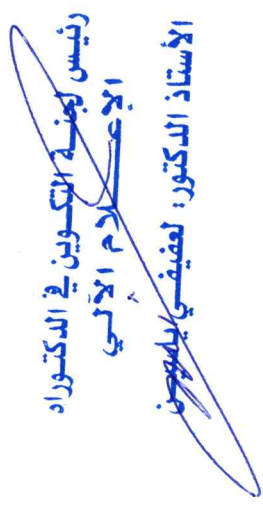 رئيس لجنة التكوين في الدكتوراه
الإعلام الآلي
الأستاذ الدكتور: لعفيفي